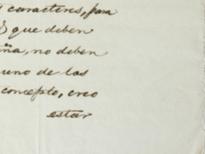 caracteres, para
que deben
ña, no deben
uno de los
concepto, creo
estar